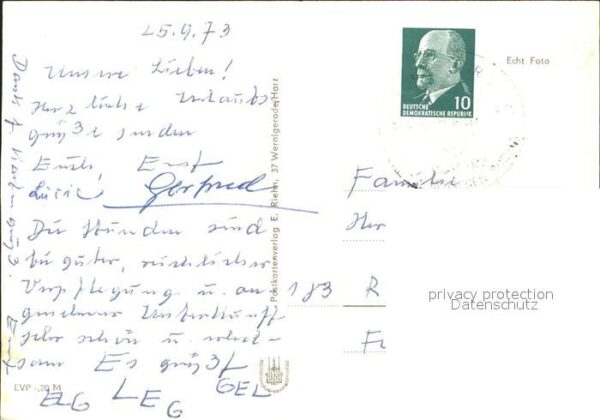 25.9.73
Unsere Lieben!
Herzliche Urlaubs
grüße senden
Euch, Ernst
Lucie Gertrud
Die Stunden sind
bei guter, reichlicher
Verpflegung u. an
genehmer Unterkunft
sehr schön u. erhol-
sam Es grüßt
LEG GEL
Dank f. Karten grüße.
Postkartenverlag E. Riehn, 37 Wernigerode/Harz
EVP -,20 M
10
DEUTSCHE
DEMOKRATISCHE REPUBLIK
Echt Foto
Familie
Her
183 R
privacy protection
Datenschutz